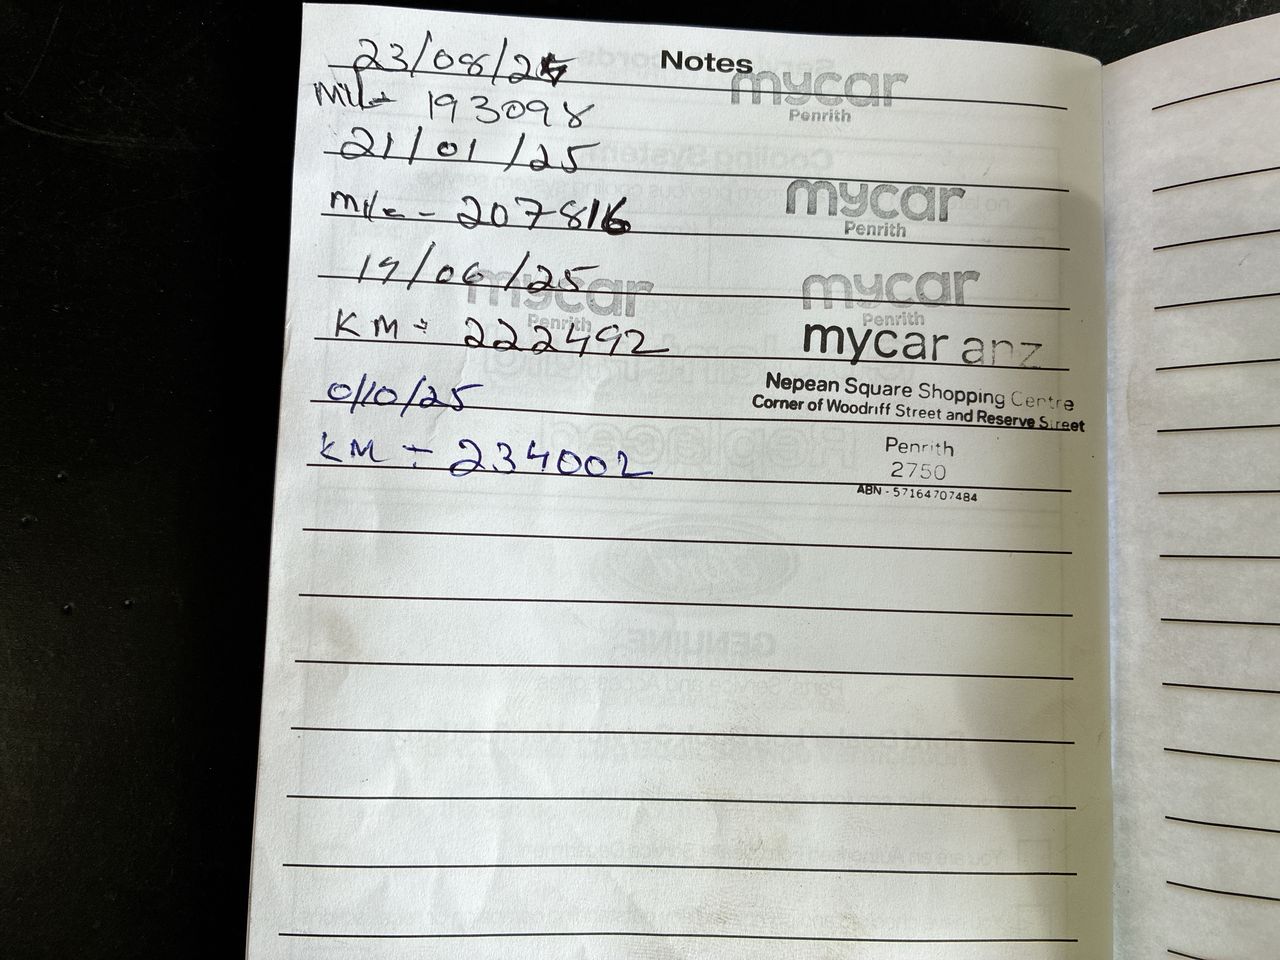 Notes
23/08/24
mycar
Penrith
Mile 193098
21/01/25
mycar
Penrith
mile - 207816
19/06/25
mycar
Penrith
mycar
Penrith
KM ÷ 222492
mycar anz
Nepean Square Shopping Centre
Corner of Woodriff Street and Reserve Street
0/10/25
KM ÷ 234002
Penrith
2750
ABN - 57164707484